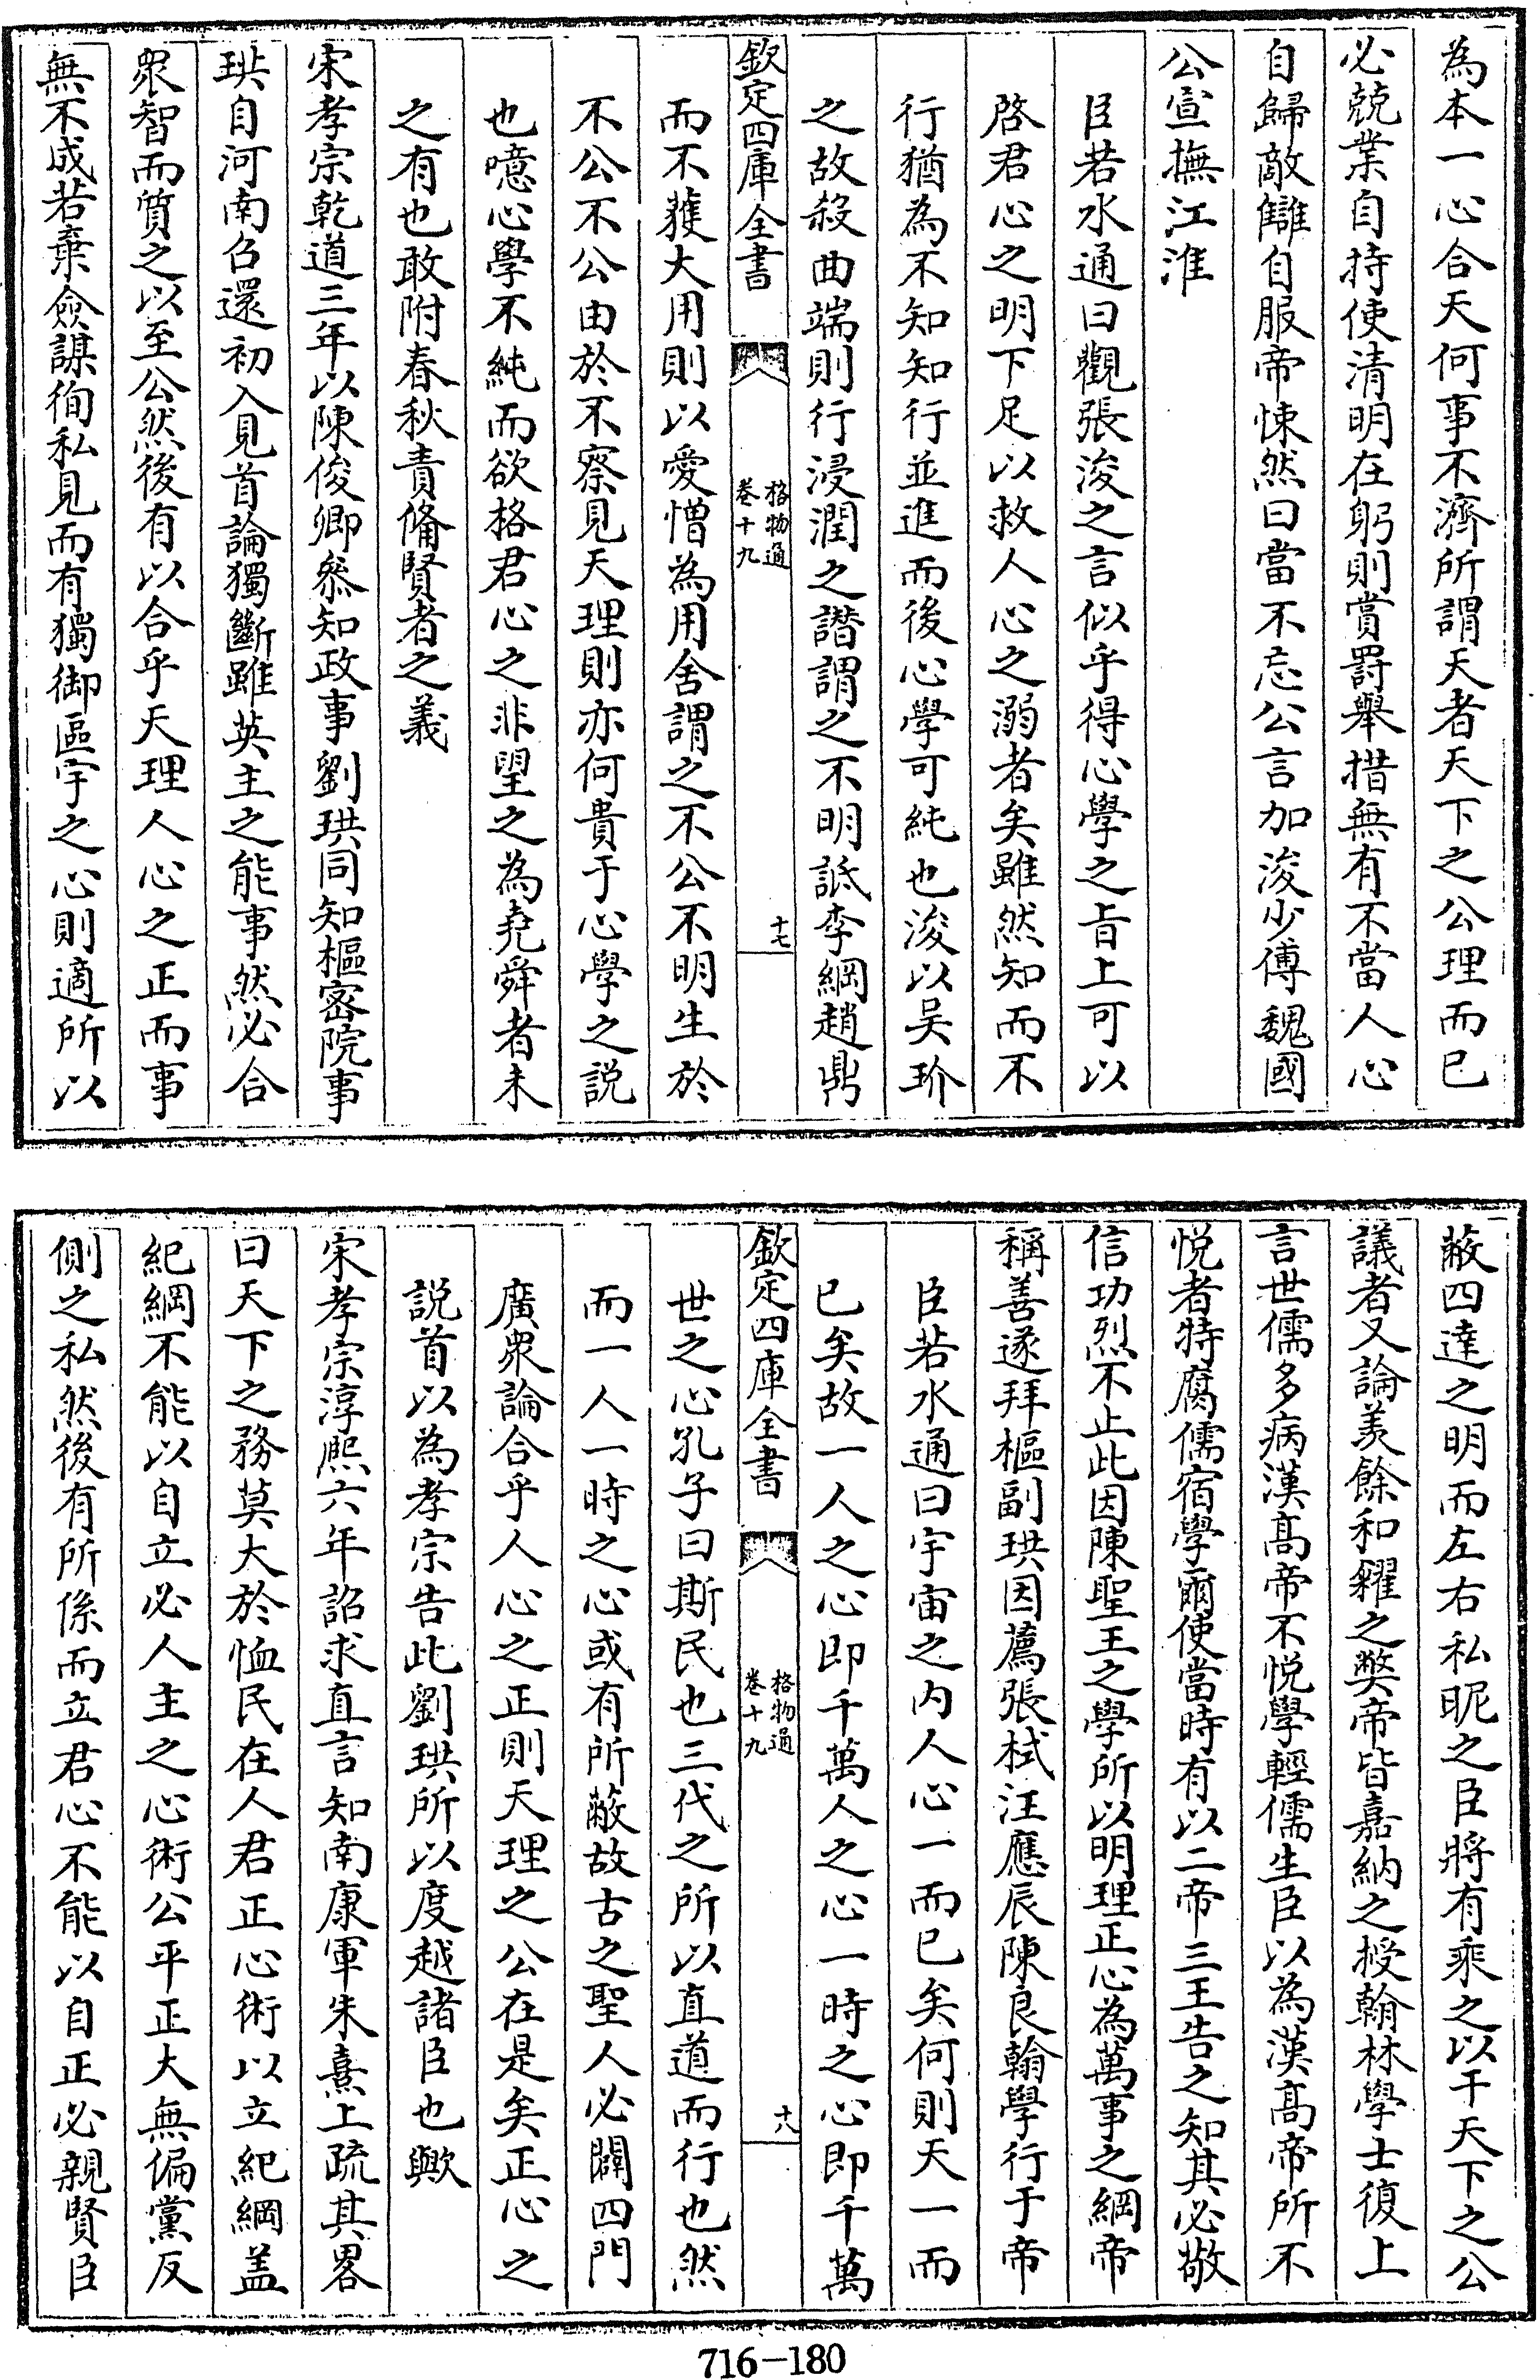 為本一心合天何事不濟所謂天者天下之公理而已
必兢業自持使清明在躬則賞罰舉措無有不當人心
自歸敵讎自服帝悚然曰當不忘公言加浚少傅魏國
公宣撫江淮
臣若水通曰觀張浚之言似乎得心學之旨上可以
啓君心之明下足以救人心之溺者矣雖然知而不
行猶為不知知行並進而後心學可純也浚以吴玠
之故殺曲端則行浸潤之譖謂之不明詆李綱趙鼎
欽定四庫全書
格物通
卷十九
十七
而不獲大用則以愛憎為用舍謂之不公不明生於
不公不公由於不察見天理則亦何貴于心學之説
也噫心學不純而欲格君心之非望之為堯舜者未
之有也敢附春秋責備賢者之義
宋孝宗乾道三年以陳俊卿叅知政事劉珙同知樞宻院事
珙自河南召還初入見首論獨斷雖英主之能事然必合
衆智而質之以至公然後有以合乎天理人心之正而事
無不成若棄僉謀徇私見而有獨御區宇之心則適所以
蔽四達之明而左右私昵之臣將有乘之以干天下之公
議者又論羡餘和糴之弊帝皆嘉納之授翰林學士復上
言世儒多病漢髙帝不悦學輕儒生臣以為漢髙帝所不
悦者特腐儒宿學爾使當時有以二帝三王告之知其必敬
信功烈不止此因陳聖王之學所以明理正心為萬事之綱帝
稱善遂拜樞副珙因薦張栻汪應辰陳良翰學行于帝
臣若水通曰宇宙之内人心一而已矣何則天一而
已矣故一人之心即千萬人之心一時之心即千萬
欽定四庫全書
格物通
卷十九
十八
世之心孔子曰斯民也三代之所以直道而行也然
而一人一時之心或有所蔽故古之聖人必闢四門
廣衆論合乎人心之正則天理之公在是矣正心之
説首以為孝宗告此劉珙所以度越諸臣也歟
宋孝宗淳熈六年詔求直言知南康軍朱熹上疏其畧
曰天下之務莫大於恤民在人君正心術以立紀綱盖
紀綱不能以自立必人主之心術公平正大無偏黨反
側之私然後有所係而立君心不能以自正必親賢臣
716-180